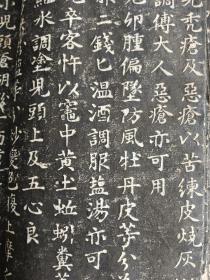 兒禿瘡及惡瘡以苦練皮燒灰
調傅大人惡瘡亦可用
兒卵腫偏墜防風牡丹皮等分
二錢匕溫酒調服鹽湯亦可
卒客忤以竈中黃土蚯蚓糞等
水調塗兒頭上及五心良
小兒頭瘡胡